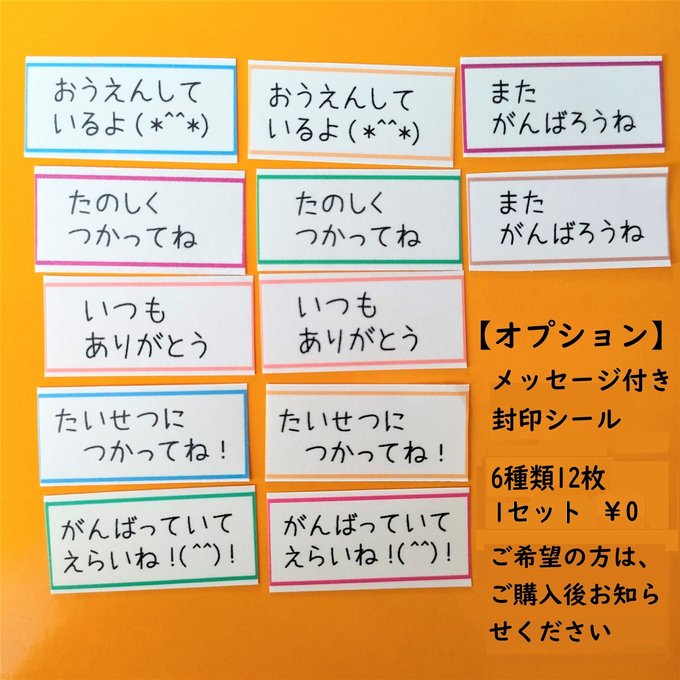 おうえんして
いるよ(*^^*)
おうえんして
いるよ(*^^*)
また
がんばろうね
たのしく
つかってね
たのしく
つかってね
また
がんばろうね
いつも
ありがとう
いつも
ありがとう
たいせつに
つかってね!
たいせつに
つかってね!
がんばっていて
えらいね!(^^)!
がんばっていて
えらいね!(^^)!
【オプション】
メッセージ付き
封印シール
6種類12枚
1セット ¥0
ご希望の方は、
ご購入後お知ら
せください